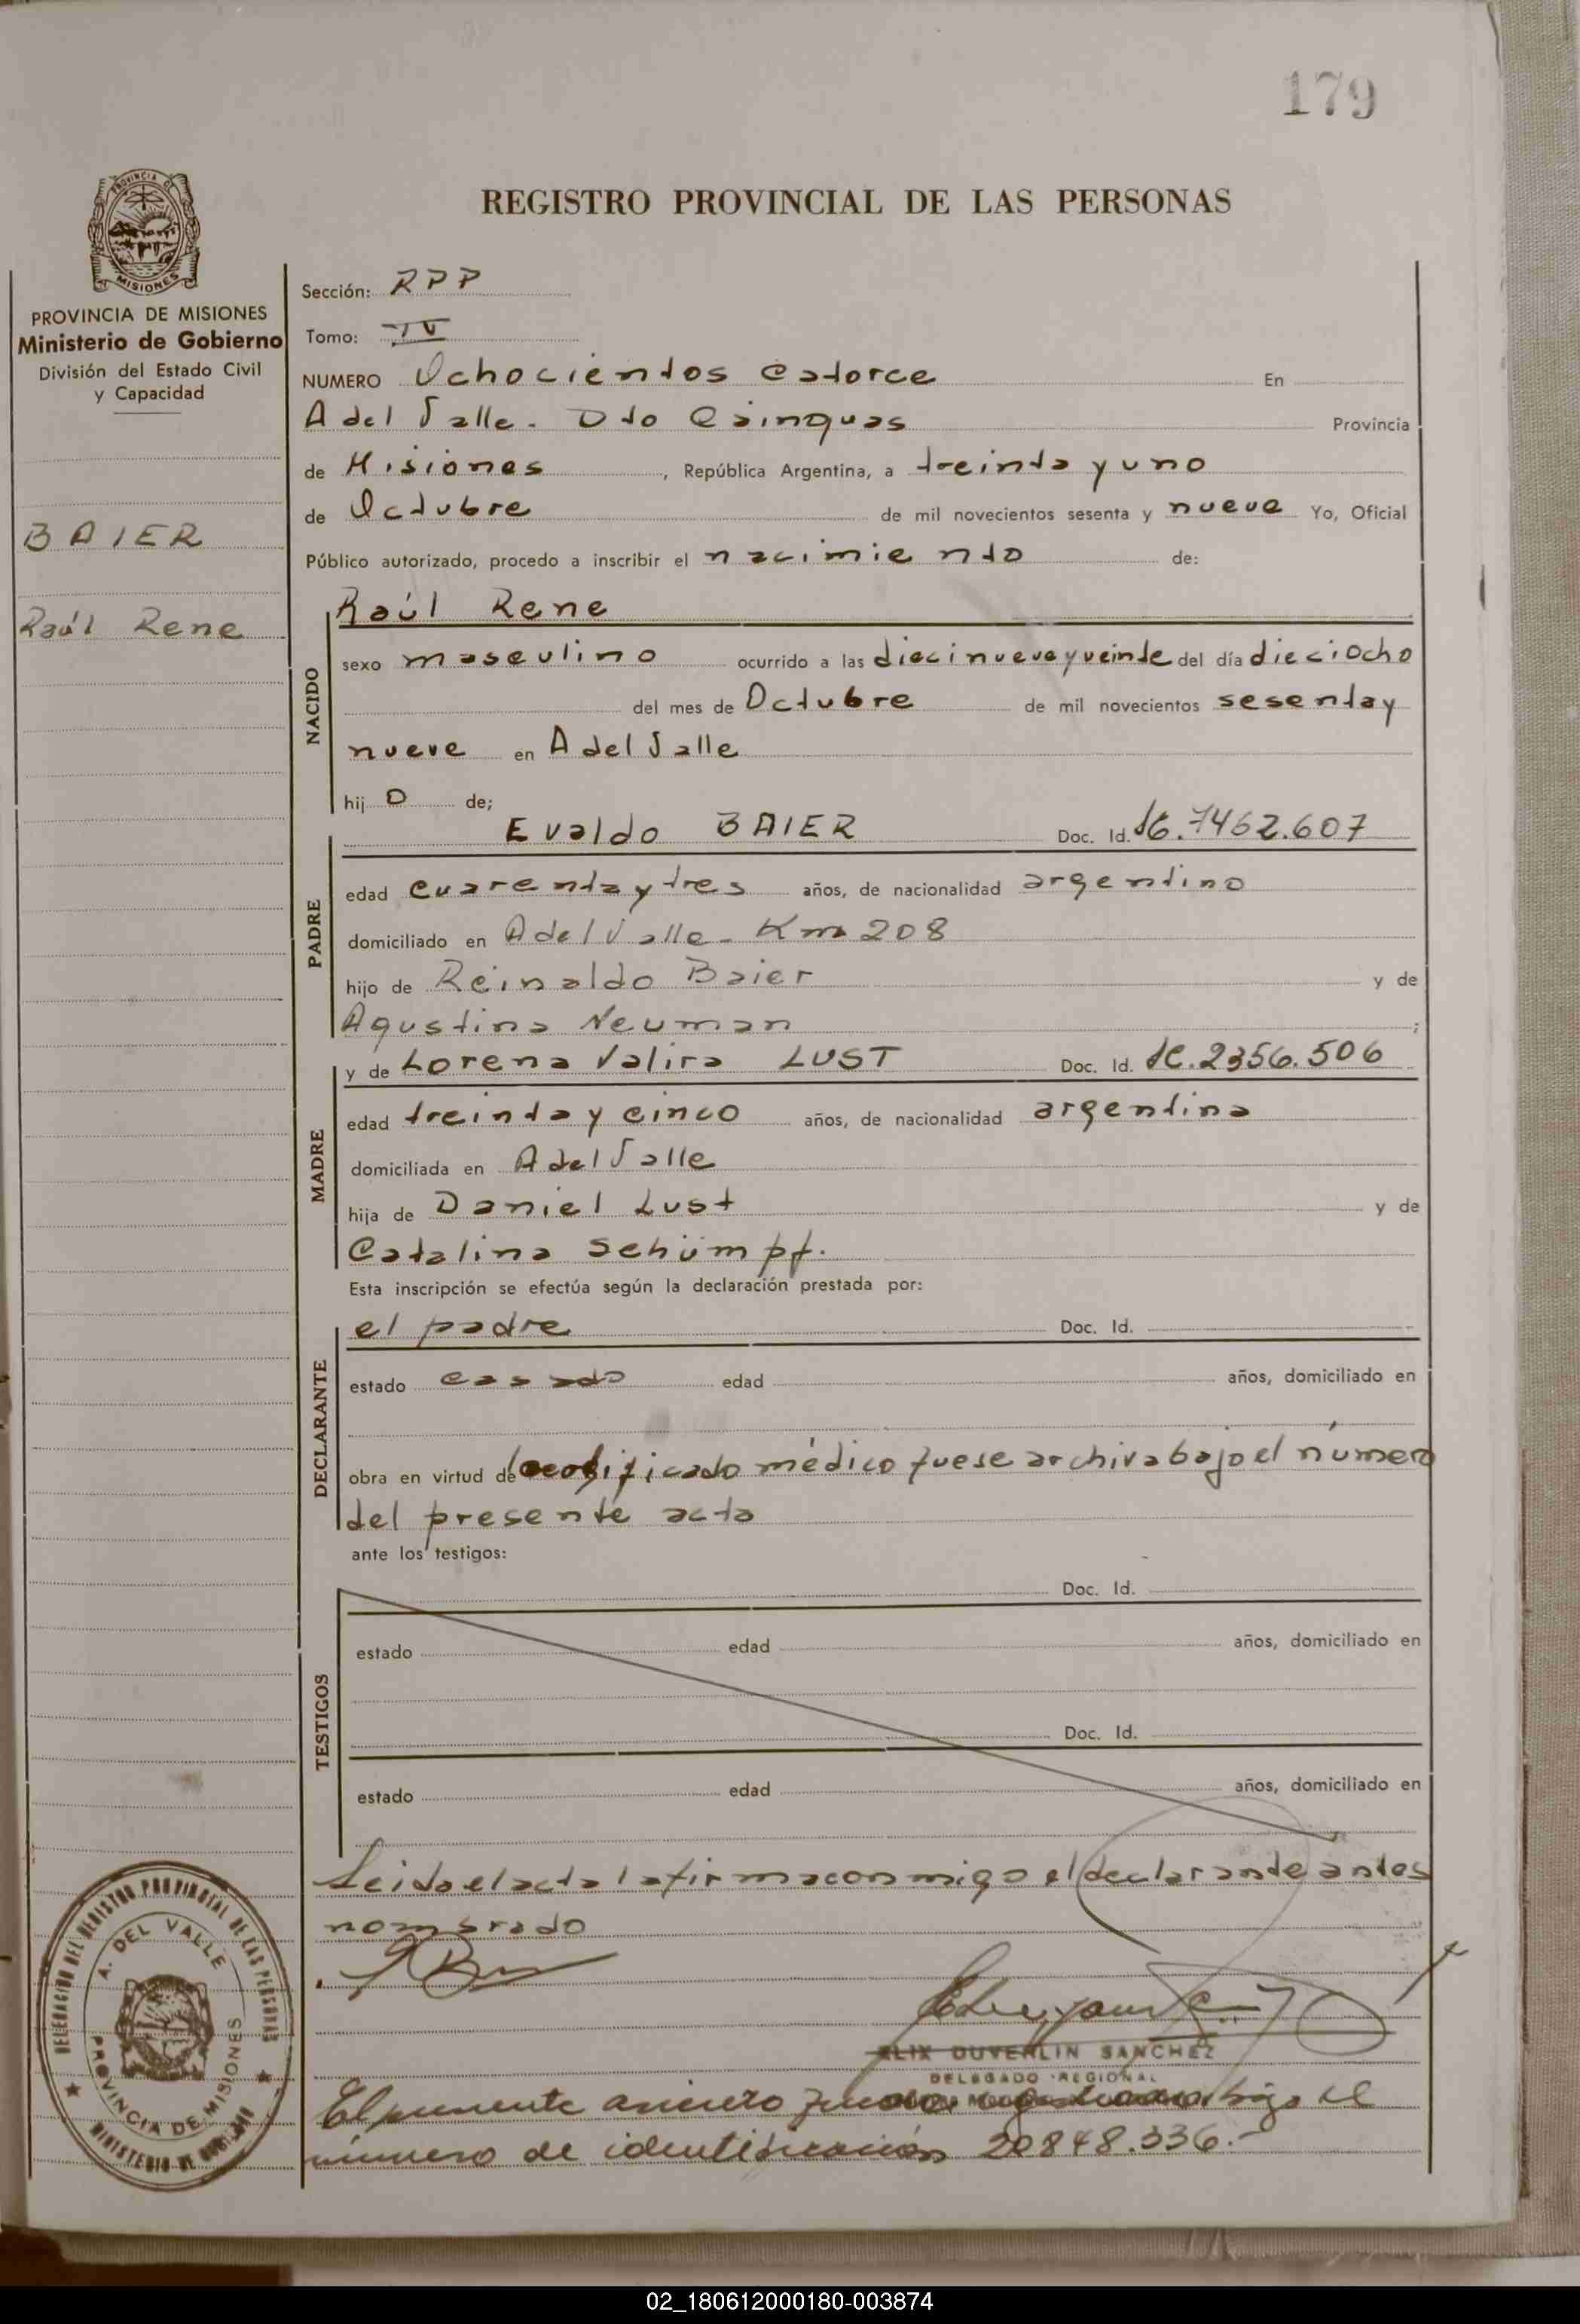 179
REGISTRO PROVINCIAL DE LAS PERSONAS
PROVINCIA DE MISIONES
PROVINCIA DE MISIONES
Ministerio de Gobierno
División del Estado Civil
y Capacidad
BAIER
Raúl Rene
Sección: RPP
Tomo: IV
NUMERO Ochocientos Catorce En
A del Valle - Dto Cainguas Provincia
de Misiones, República Argentina, a treinta y uno
de Octubre de mil novecientos sesenta y nueve Yo, Oficial
Público autorizado, procedo a inscribir el nacimiento de:
NACIDO
Raúl Rene
sexo masculino ocurrido a las diecinueve y veinte del día dieciocho
del mes de Octubre de mil novecientos sesenta y
nueve en A del Valle
hij o de;
PADRE
Evaldo BAIER Doc. Id. 7462.607
edad cuarenta y tres años, de nacionalidad argentino
domiciliado en A del Valle - Km 208
hijo de Reinaldo Baier y de
Agustina Neuman ;
MADRE
y de Lorena Valira LUST Doc. Id. 2356.506
edad treinta y cinco años, de nacionalidad argentina
domiciliada en A del Valle
hija de Daniel Lust y de
Catalina Schümpf.
Esta inscripción se efectúa según la declaración prestada por:
DECLARANTE
el padre Doc. Id.
estado casado edad años, domiciliado en
obra en virtud de médico que se archiva bajo el número
del presente acta
ante los testigos:
TESTIGOS
Doc. Id.
estado edad años, domiciliado en
Doc. Id.
estado edad años, domiciliado en
Leida el acta la firma conmigo el declarante antes
nombrado
DELEGACION DEL REGISTRO PROVINCIAL DE LAS PERSONAS
A. DEL VALLE
PROVINCIA DE MISIONES
MINISTERIO DE
SANCHEZ
DELEGADO REGIONAL
El presente bajo el
número de identificación 20848.336.-
02_180612000180-003874